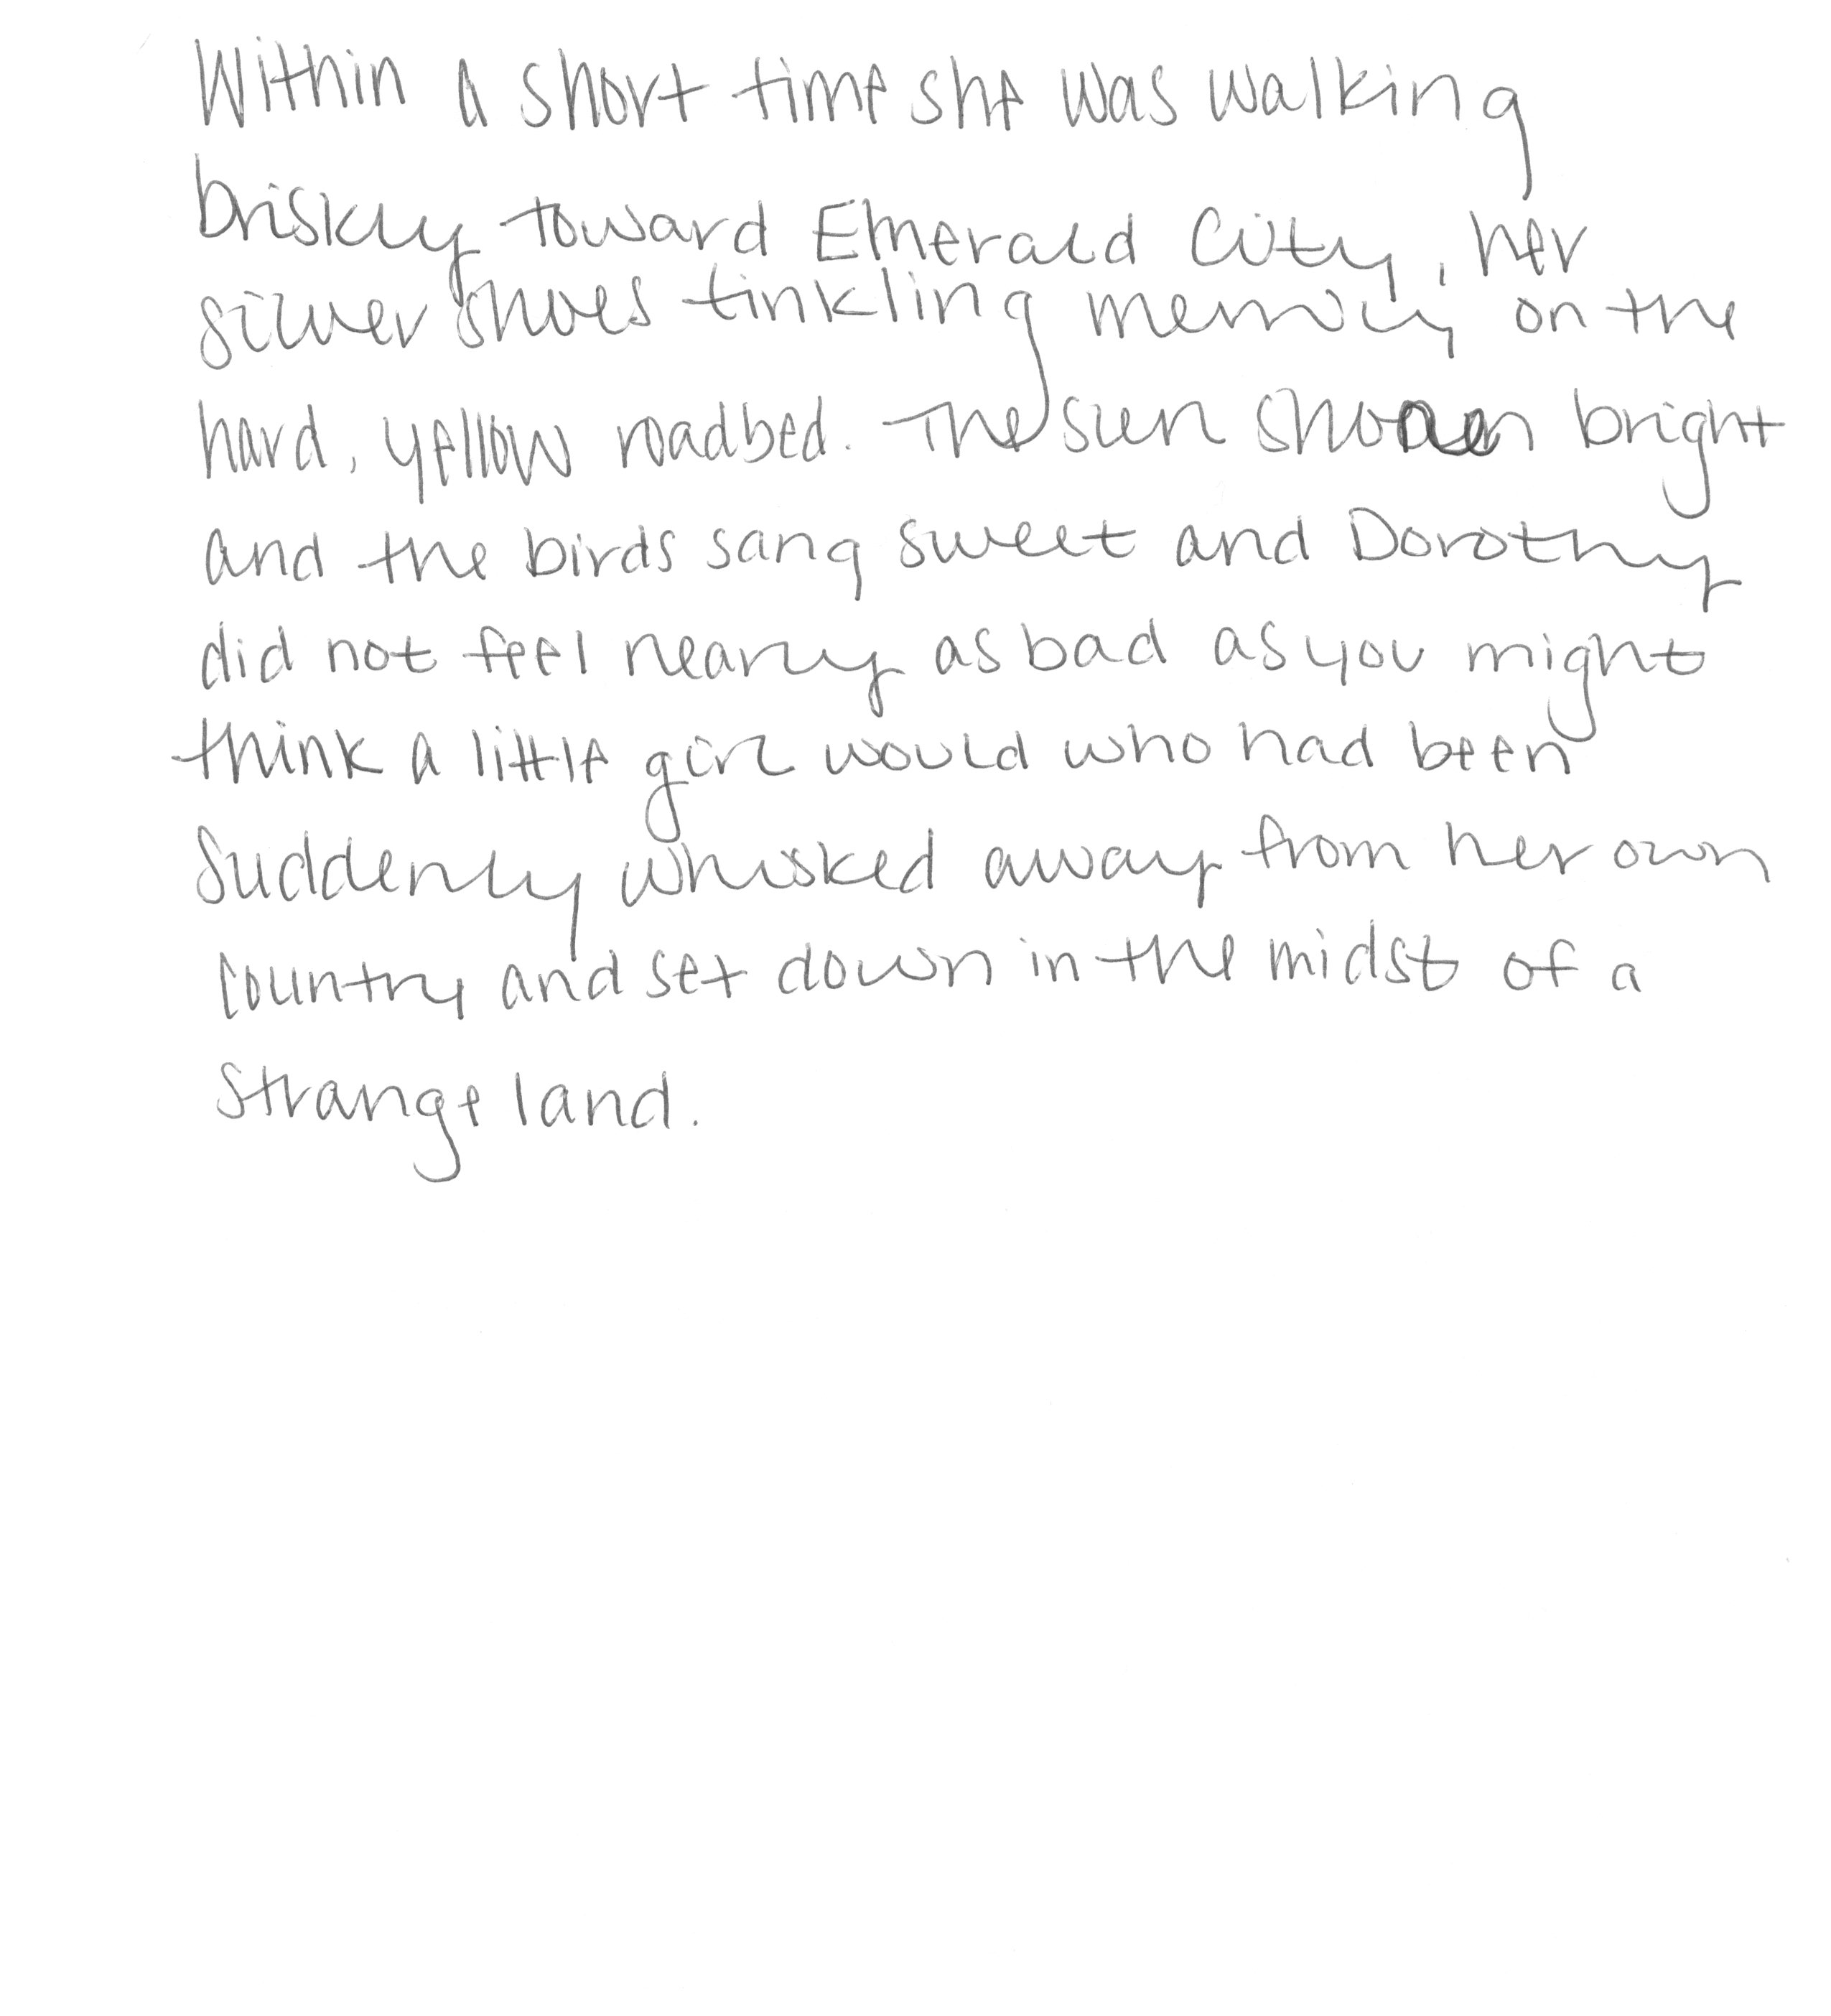 Within a short time she was walking
briskly toward Emerald City, her
silver shoes tinkling merrily on the
hard, yellow roadbed. The sun shone bright
and the birds sang sweet and Dorothy
did not feel nearly as bad as you might
think a little girl would who had been
suddenly whisked away from her own
country and set down in the midst of a
strange land.